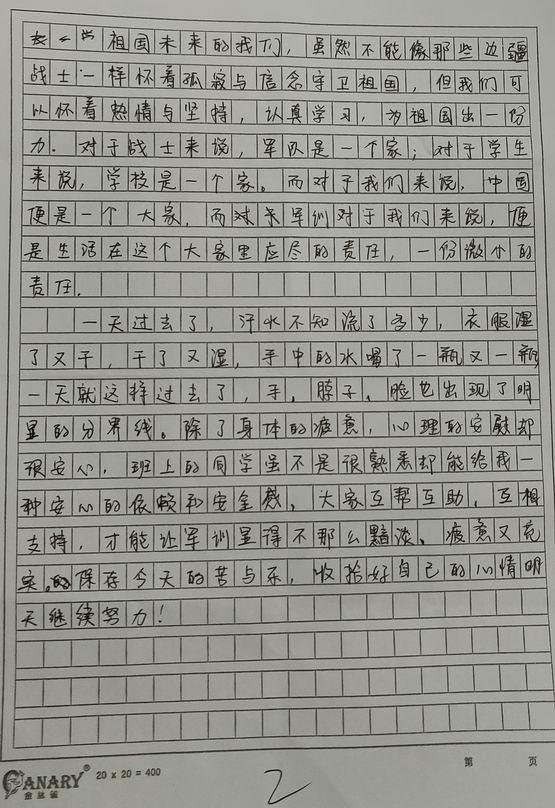 祖国未来的我们，虽然不能像那些边疆
战士一样怀着孤寂与信念守卫祖国，但我们可
以怀着热情与坚持，认真学习，为祖国出一份
力．对于战士来说，军队是一个家；对于学生
来说，学校是一个家。而对于我们来说，中国
便是一个大家．而对于军训对于我们来说，便
是生活在这个大家里应尽的责任，一份微小的
责任．
一天过去了，汗水不知流了多少，衣服湿
了又干，干了又湿，手中的水喝了一瓶又一瓶
一天就这样过去了，手、脖子、脸也出现了明
显的分界线。除了身体的疲惫，心理的安慰却
很安心，班上的同学虽不是很熟悉却能给我一
种安心的依赖和安全感，大家互帮互助，互相
支持，才能让军训显得不那么黯淡、疲惫又充
实。保存今天的苦与乐，收拾好自己的心情明
天继续努力！
CANARY® 20 x 20 = 400 第 页
金丝雀
2